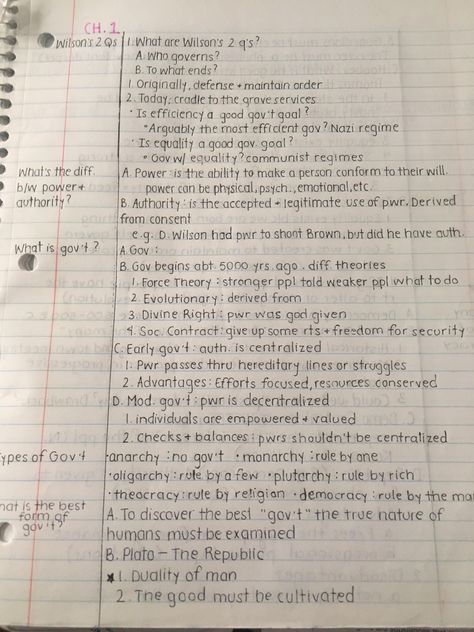 CH. 1
Wilson's 2 Qs 1. What are Wilson's 2 q's?
A. Who governs?
B. To what ends?
1. Originally, defense + maintain order
2. Today, cradle to the grave services
• Is efficiency a good gov't goal?
• Arguably the most efficient gov? Nazi regime
• Is equality a good gov. goal?
• Gov w/ equality? communist regimes
What's the diff. A. Power: is the ability to make a person conform to their will.
b/w power + power can be physical, psych., emotional, etc.
authority? B. Authority: is the accepted + legitimate use of pwr. Derived
from consent
e.g. D. Wilson had pwr to shoot Brown, but did he have auth.
What is gov't? A. Gov:
B. Gov begins abt 5000 yrs. ago. diff theories
1. Force Theory: stronger ppl told weaker ppl what to do
2. Evolutionary: derived from
3. Divine Right: pwr was god given
4. Soc. Contract: give up some rts + freedom for security
C. Early gov't: auth. is centralized
1. Pwr passes thru hereditary lines or struggles
2. Advantages: Efforts focused, resources conserved
D. Mod. gov't: pwr is decentralized
1. individuals are empowered + valued
2. checks + balances: pwrs shouldn't be centralized
ypes of Gov't • anarchy: no gov't • monarchy: rule by one
• oligarchy: rule by a few • plutarchy: rule by rich
• theocracy: rule by religion • democracy: rule by the ma
hat is the best A. To discover the best "gov't" the true nature of
form of humans must be examined
gov't? B. Plato - The Republic
* 1. Duality of man
2. The good must be cultivated